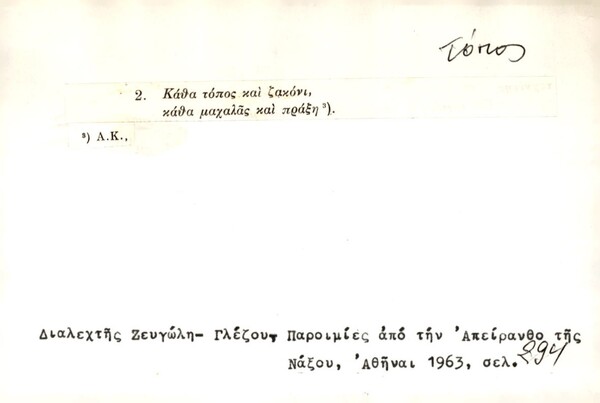 τόπος
2. Κάθα τόπος καὶ ζακόνι,
κάθα μαχαλᾶς καὶ πράξη ³).
³) Α.Κ.,
Διαλεχτῆς Ζευγώλη- Γλέζου, Παροιμίες ἀπό τήν Ἀπείρανθο τῆς
Νάξου, Ἀθῆναι 1963, σελ. 294